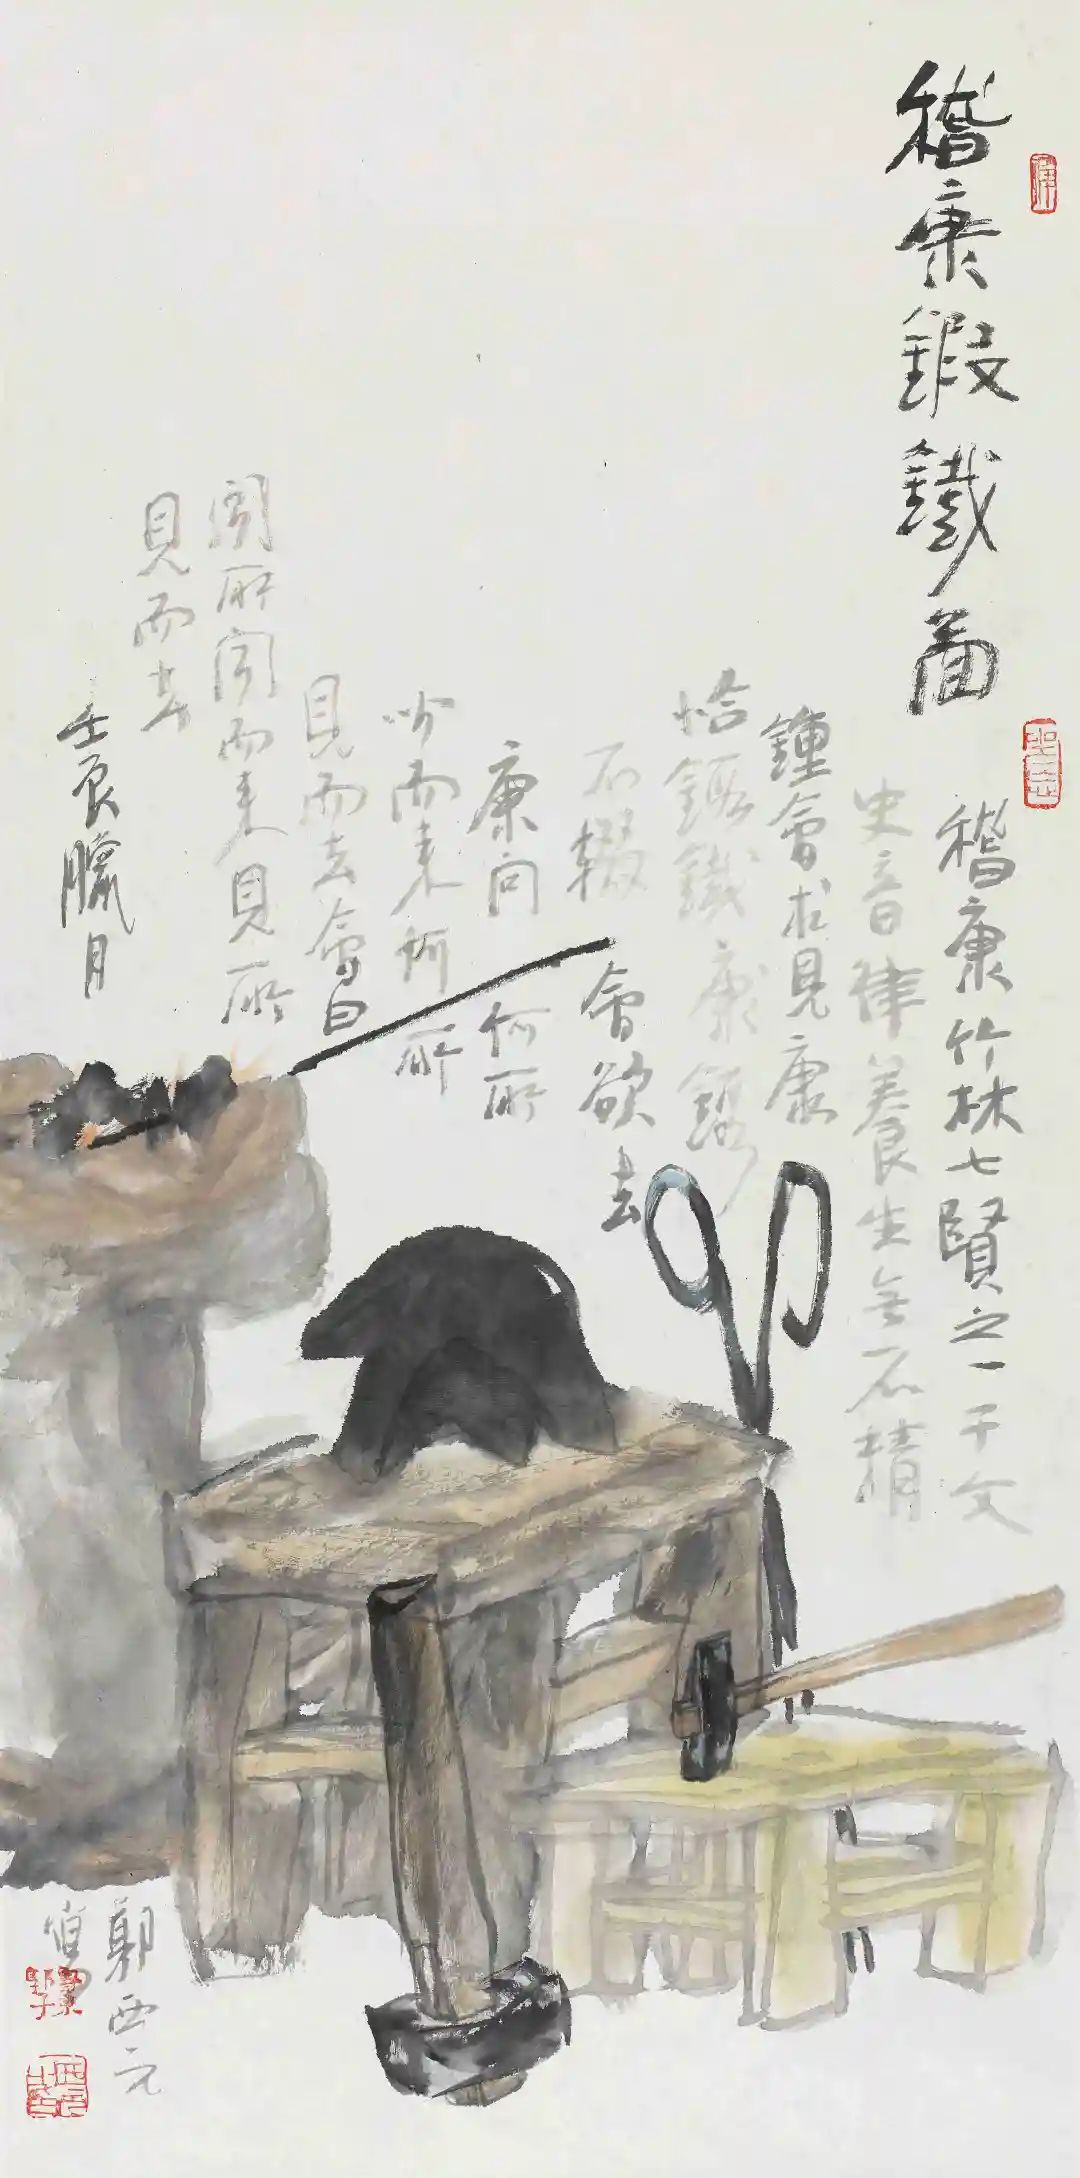 嵇康鍛鐵圖
嵇康竹林七賢之一于文
史音律養生無不精
鍾會求見康
恰鍛鐵康鍛
不輟 會欲去
康向 何所
聞而來 所
見而去會曰
聞所聞而來見所
見而去
壬辰臘月
郭西元
寫